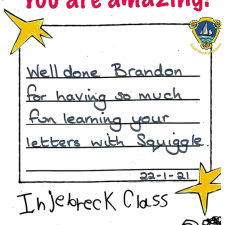 You are amazing!
Well done Brandon
for having so much
fun learning your
letters with Squiggle.
22-1-21
Injebreck Class